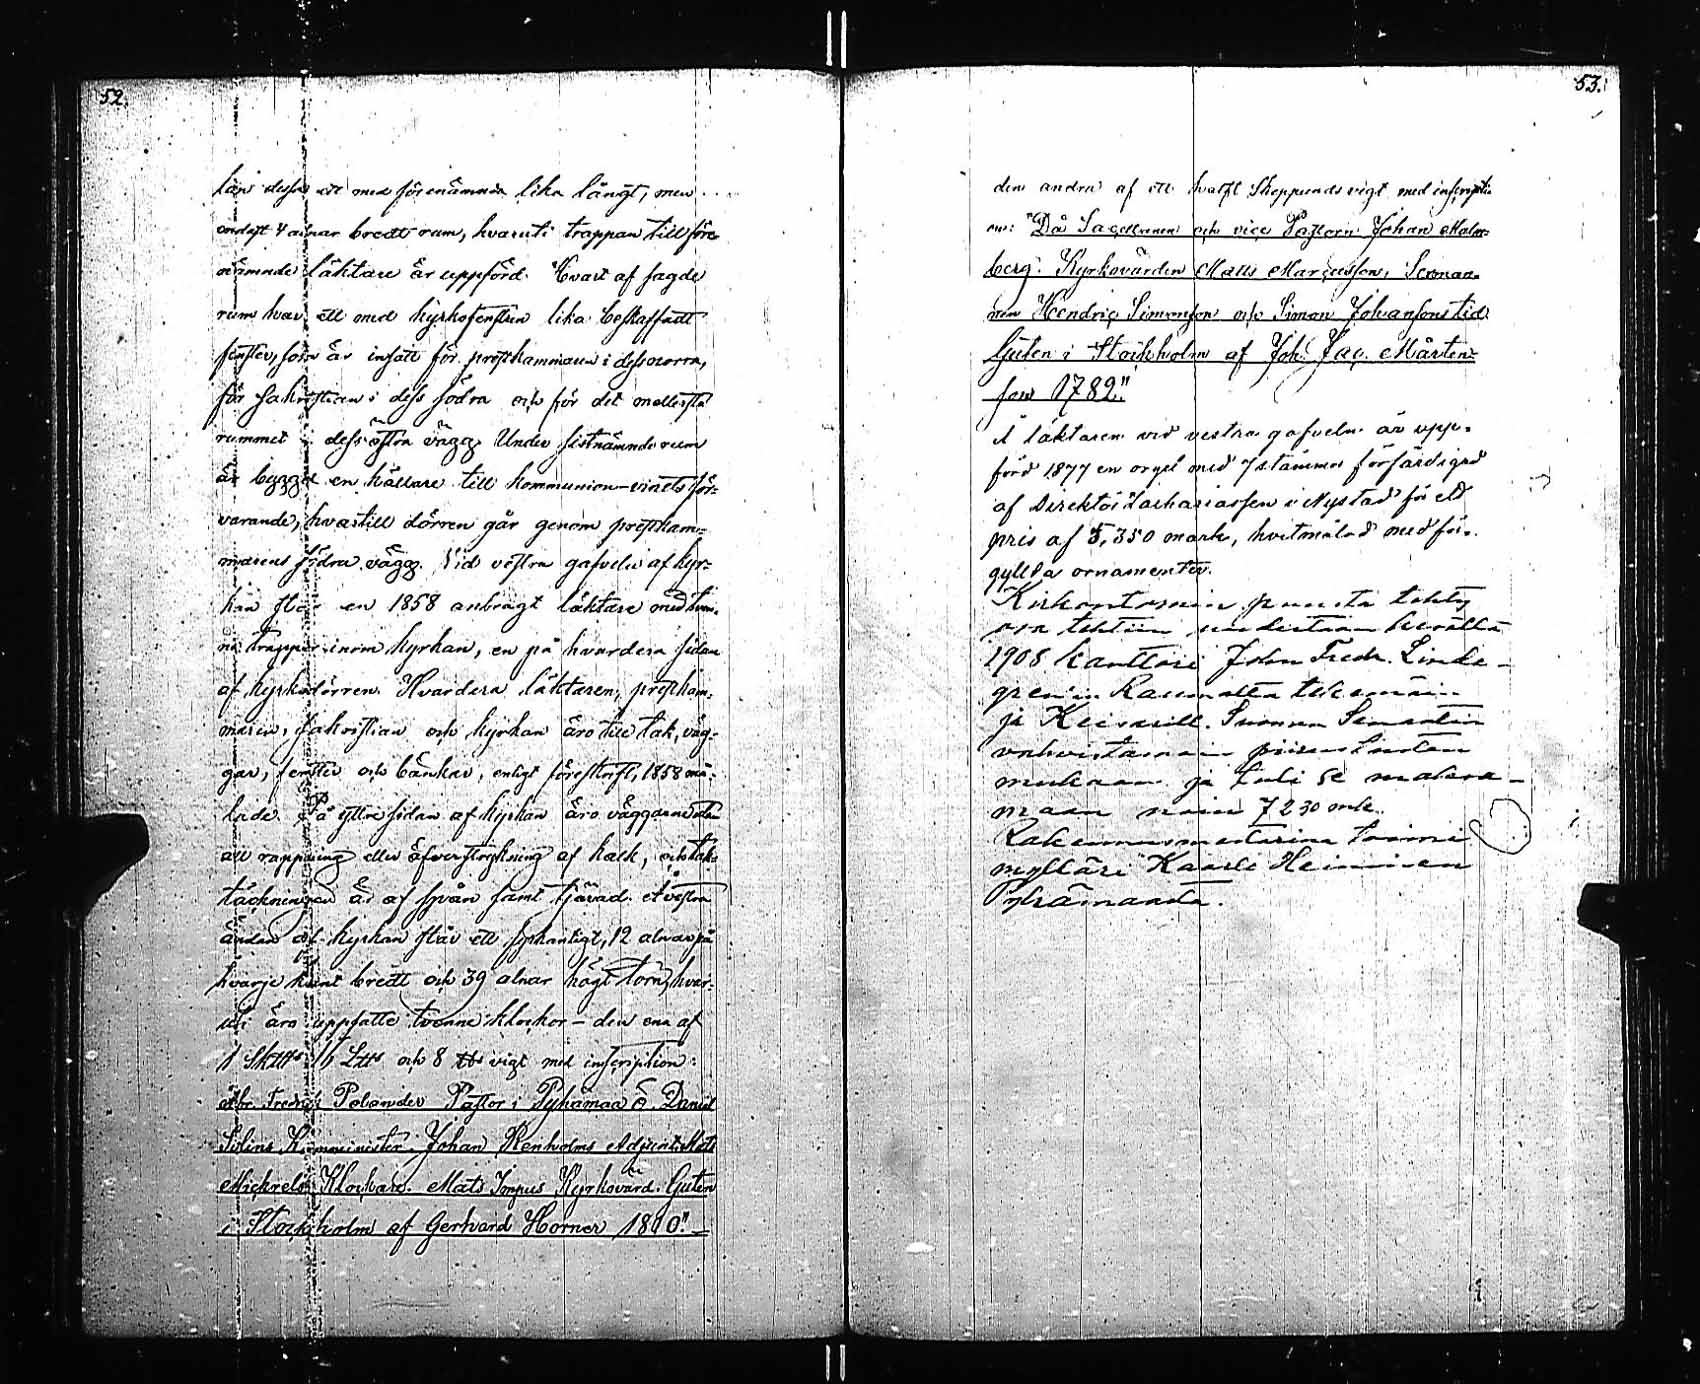 52.
läns dessa ett med förenämnda lika långt, men
endast 4 alnar bredt rum, hvaruti trappan till före
nämnde läktare är uppförd. Hvart af sagde
rum har ett med kyrkofenstren lika beskaffadt
fenster, som är insatt för prestkammaren i dess norra,
för sakristian i dess södra och för det mellersta
rummet i dess östra vägg. Under sistnämnde rum
är byggd en källare till kommunion-vinets för-
varande, hvartill dörren går genom prestkam-
marens södra vägg. Vid vestra gafveln af kyr-
kan står en 1858 anbragt läktare med tven-
ne trappor inom kyrkan, en på hvardera sidan
af kyrkodörren. Hvardera läktaren, prestkam-
maren, sakristian och kyrkan äro till tak, väg-
gar, fenster och bänkar, enligt föreskrift, 1858 må-
lade. På yttre sidan af kyrkan äro väggarne utan
all rappning eller öfverstrykning af kalk, och tak-
täckningen är af spån samt tjärad. Å vestra
ändan af kyrkan står ett fyrkantigt, 12 alnar på
hvarje kant bredt och 39 alnar högt torn, hvar-
uti äro uppsatte tvenne klockor – den ena af
1 Sk℔ 16 L℔ och 8 ℔s vigt med inscription:
Abr. Fredric Polander Pastor i Pyhämaa O. Daniel
Johan Renholms Adjunt. Mats
Mickrels Klockare. Mats Impus Kyrkovärd. Guten
i Stockholm af Gerhard Horner 1810." –
53.
den andra af ett halft Skeppunds vigt med inscripti-
on: "Då Sacellanen och vice Pastorn Johan Malm-
berg. Kyrkovärden Matts Marcusson, Sexman-
nen Hendric Simonson och Simon Johansons tid
Guten i Stockholm af Joh. Jac. Mårten-
son 1782".
Å läktaren vid vestra gafveln är upp-
förd 1877 en orgel med 7 stämmor förfärdigad
af Direktör Zachariassen i Nystad för ett
pris af 5,350 mark, hvitmålad med för-
gyllda ornamenter.
Kirkontornin puusta tehty
osa tehtiin uudestaan kesällä
1908 kanttori John Fredr. Linde-
gren'in Raumalta tekemän
ja Keisarill. Suomen Senaatin
vahvistaman piirustusten
mukaan ja tuli se maksa-
maan noin 7230 mk.
Rakennusmestarina toimi
mylläri Kaarle Heininen
Pyhämaasta.